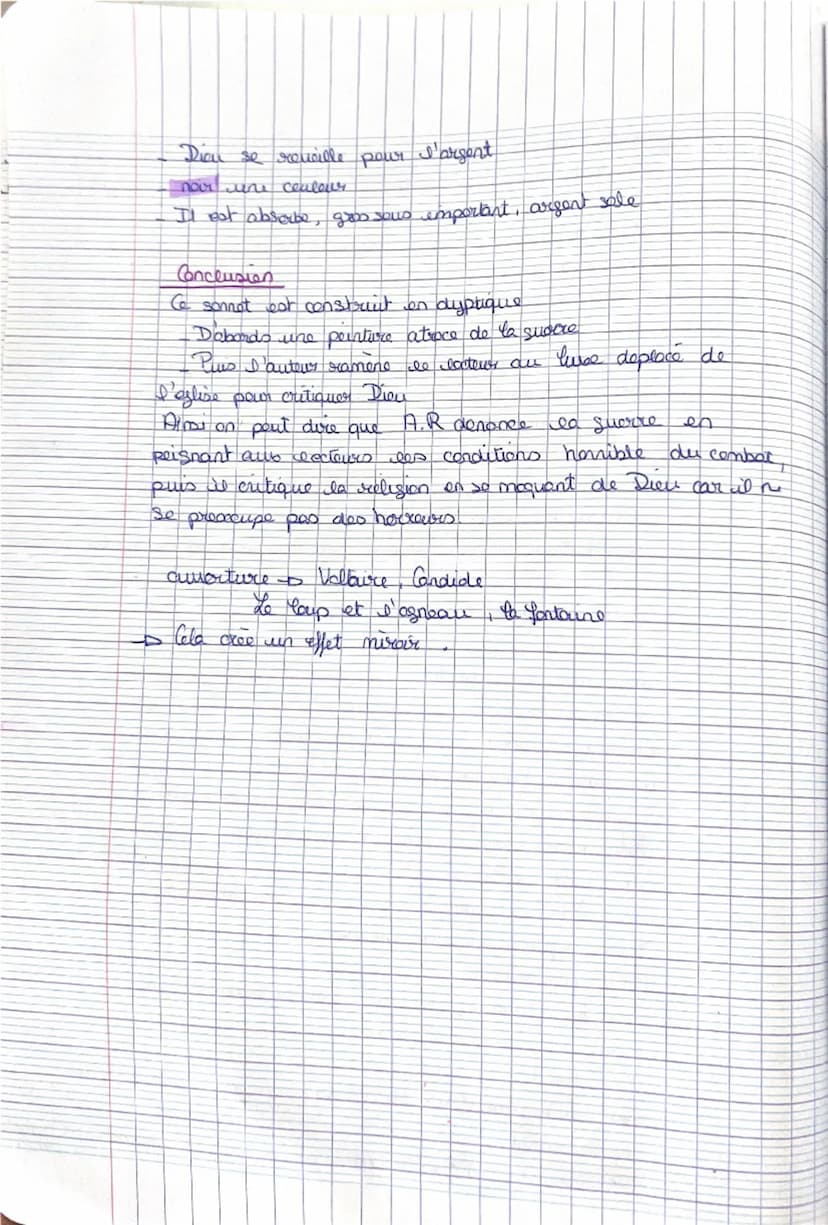 - Dieu se réveille pour l'argent
- noir une couleur
- Il est absorbe, gros sous important, argent sale
Conclusion
Ce sonnet est construit en dyptique
- D'abords une peinture atroce de la guerre
- Puis l'auteur ramène le lecteur au luxe deplacé de
l'église pour critiquer Dieu
Ainsi on peut dire que A.R denonce la guerre en
peignant aux lecteurs les conditions horrible du combat,
puis il critique la religion en se moquant de Dieu car il n
se preoccupe pas des horreurs
ouverture → Voltaire, Candide
Le loup et l'agneau, La fontaine
→ Cela crée un effet miroir.